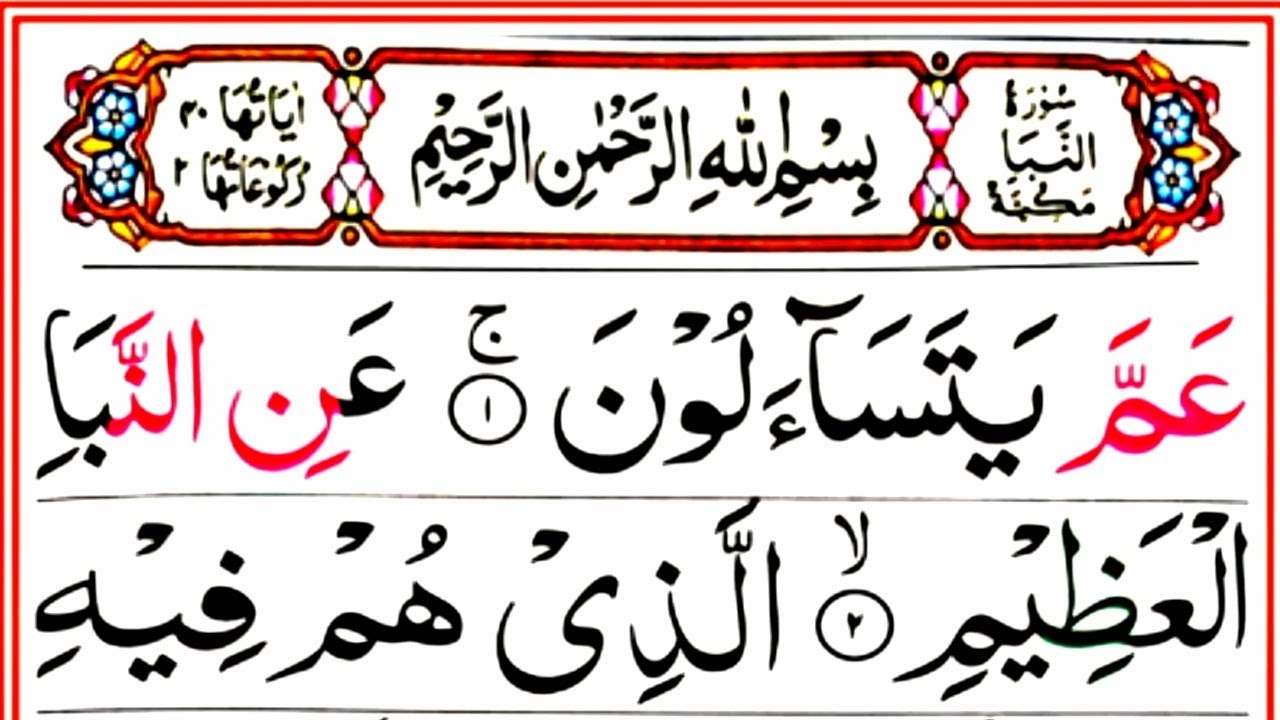 سُوْرَةُ
النَّبَاِ
مَكِّيَّةٌ
بِسْمِ اللّٰهِ الرَّحْمٰنِ الرَّحِيْمِ
اٰيَاتُهَا ۴۰
رُكُوْعَاتُهَا ۲
عَمَّ يَتَسَآءَلُوْنَ ۚ ﴿۱﴾ عَنِ النَّبَاِ
الْعَظِيْمِ ۙ ﴿۲﴾ الَّذِىْ هُمْ فِيْهِ